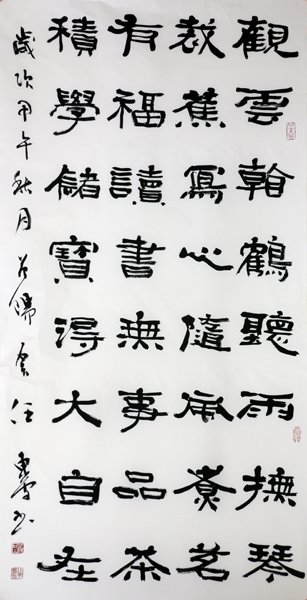 觀雲翰鶴聽雨撫琴
栽蕉寫心隨風煮茗
有福讀書無事品茶
積學儲寶得大自在
歲次甲午秋月